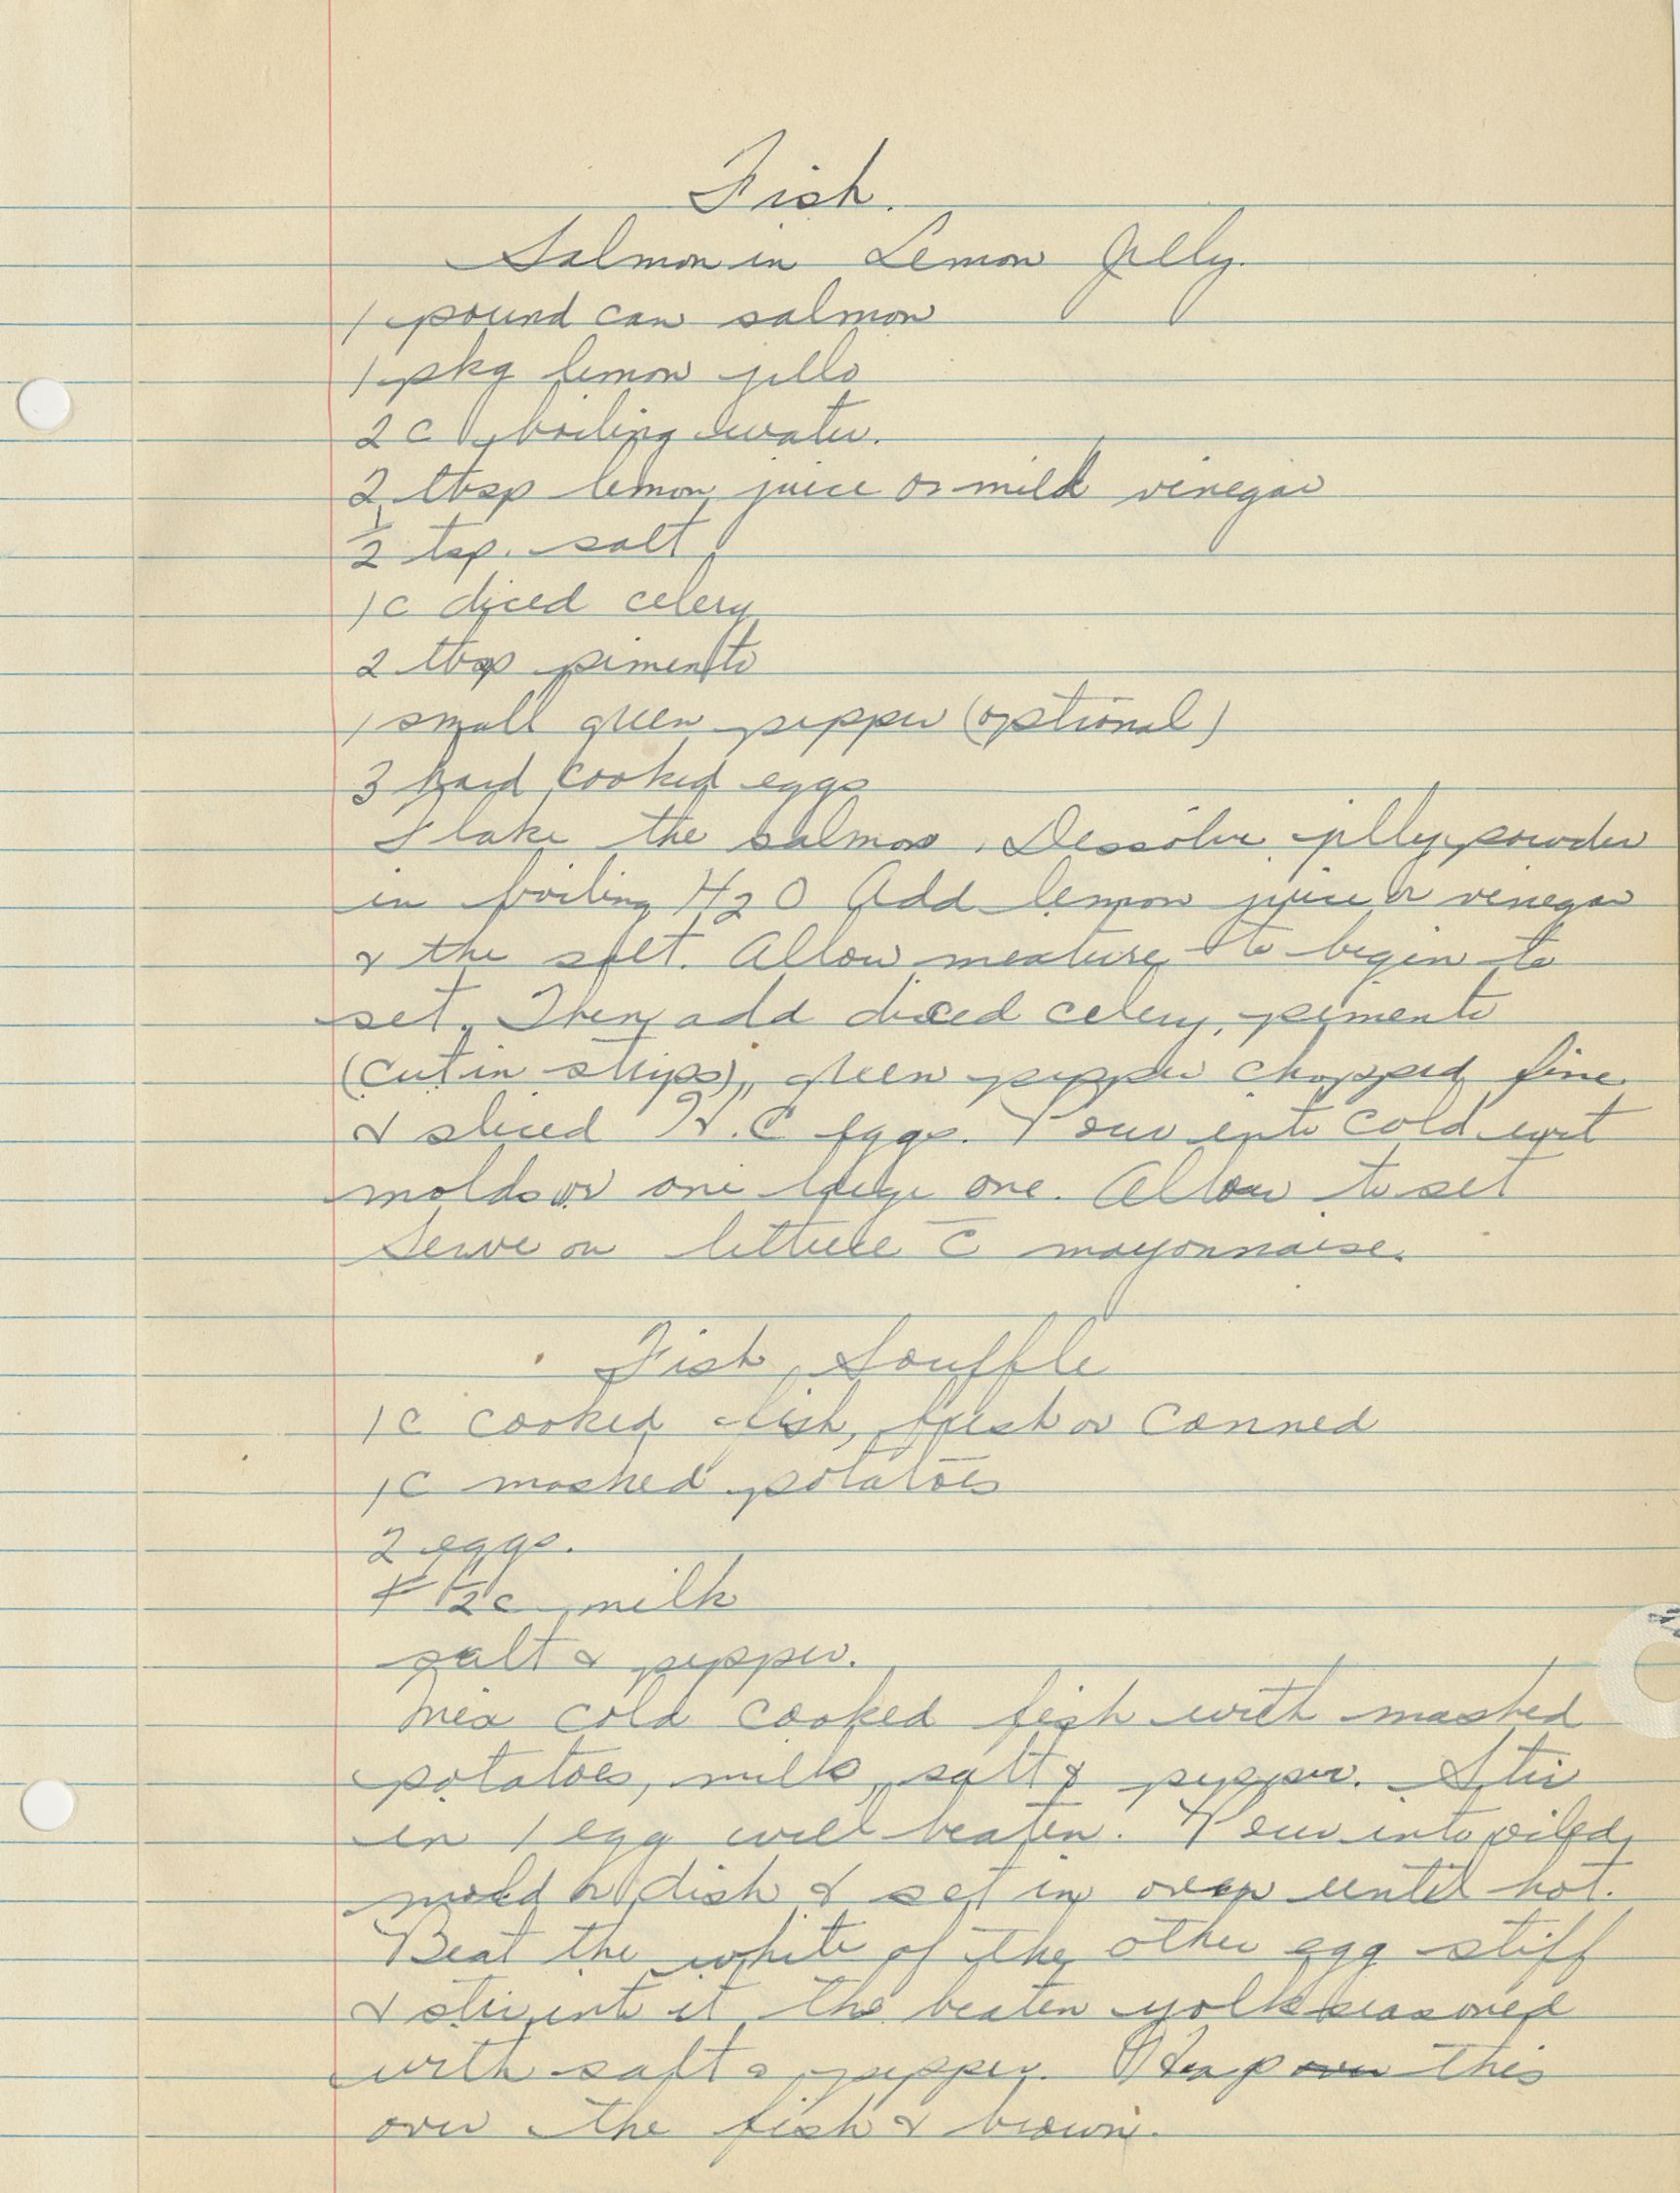 Fish.
Salmon in Lemon Jelly.
1 pound can salmon
1 pkg lemon jello
2 c boiling water.
2 tbsp lemon juice or mild vinegar
1/2 tsp. salt
1 c diced celery
2 tbsp pimento
1 small green pepper (optional)
3 hard cooked eggs
Flake the salmon. Dessolve jelly powder
in boiling H2O Add lemon juice or vinegar
& the salt. Allow mexture to begin to
set. Then add diced celery, pimento
(cut in strips), green pepper chopped fine
& sliced H.C eggs. Pour into cold wet
molds or one large one. Allow to set
Serve on lettuce c̄ mayonnaise.
Fish Souffle
1 c cooked fish, fresh or canned
1 c mashed potatoes
2 eggs.
1/2 c milk
salt & pepper.
Mex cold cooked fish with mashed
potatoes, milk, salt & pepper. Stir
in 1 egg well beaten. Pour into oiled
mold or dish & set in oven until hot.
Beat the white of the other egg stiff
& stir into it the beaten yolk seasoned
with salt & pepper. Heap this
over the fish & brown.